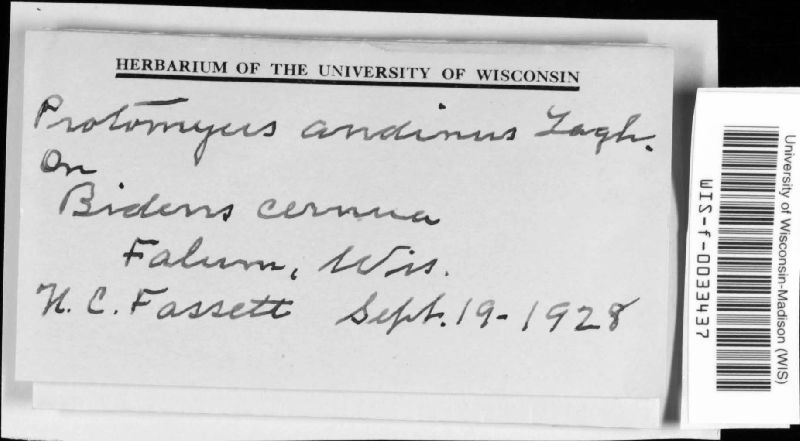 HERBARIUM OF THE UNIVERSITY OF WISCONSIN
Protomyces andinus Lagh.
On
Bidens cernua
Falum, Wis.
N. C. Fassett Sept. 19-1928
University of Wisconsin-Madison (WIS)
WIS-f-0033437